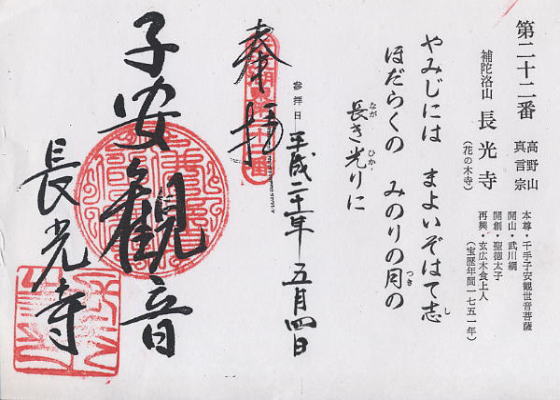 第二十二番
高野山
真言宗
補陀洛山 長光寺
(花の木寺)
本尊・千手子安観世音菩薩
開山・武川綱
開創・聖徳太子
再興・玄広木食上人
(宝暦年間一七五一年)
やみじには まよいぞはて志
ほだらくの みのりの月の
長き光りに
し
つき
なが
ひか
参拝日
平成二十一年 五月四日
奉拝
子安観音
長光寺